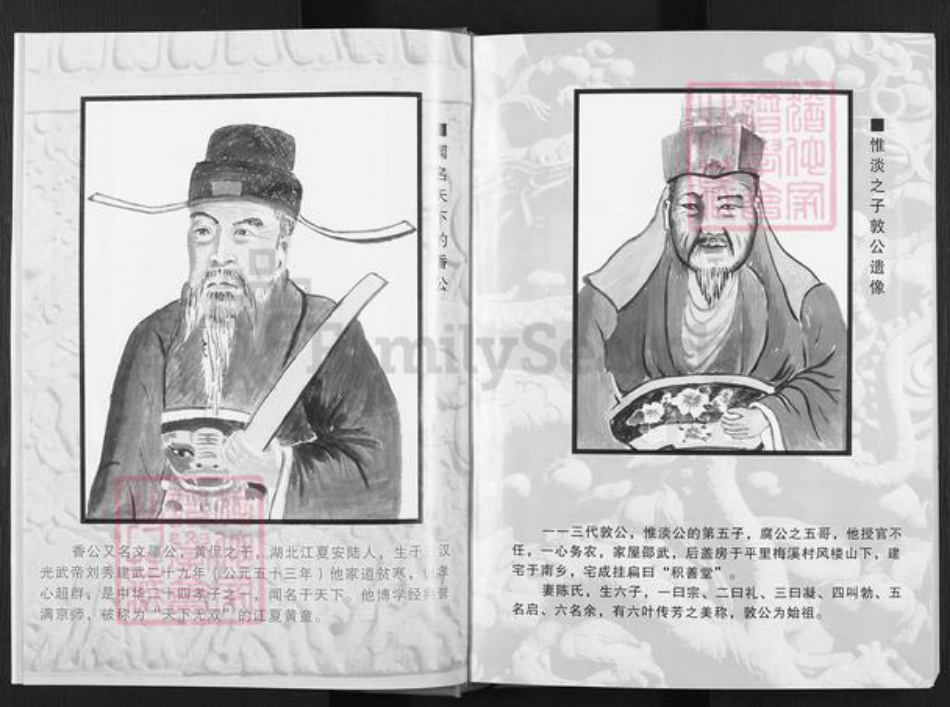 闻名天下的香公
香公又名文彊公，黄伣之子，湖北江夏安陆人，生于 汉
光武帝刘秀建武二十九年（公元五十三年）他家道贫寒， 孝
心超群，是中华二十四孝子之一，闻名于天下。他博学经典誉
满京师，被称为“天下无双”的江夏黄童。
惟淡之子敦公遗像
一一三代敦公，惟淡公的第五子，腐公之五哥，他授官不
任，一心务农，家屋邵武，后盖房于平里梅溪村风楼山下，建
宅于南乡，宅成挂扁曰“积善堂”。
妻陈氏，生六子，一曰宗、二曰礼、三曰凝、四叫勃、五
名启、六名余，有六叶传芳之美称，敦公为始祖。
FamilySe